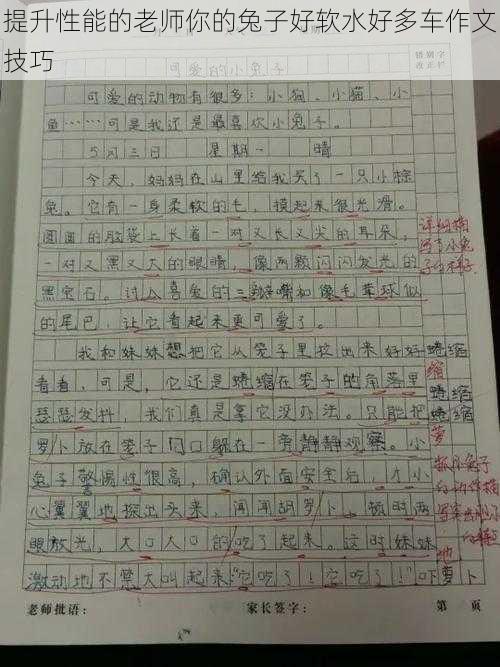 提升性能的老师你的兔子好软水好多车作文
技巧
错别字
改正栏
可爱的小兔子
可爱的动物有很多：小狗、小猫、小
鱼……可是我还是最喜欢小兔子。
5月三日 星期一 晴
今天，妈妈在山里给我买了一只小棕
兔。它有一身柔软的毛，摸起来很光滑。
圆圆的脑袋上长着一对又长又尖的耳朵，
一对又黑又大的眼睛，像两颗闪闪发光的
黑宝石。讨人喜爱的三瓣嘴和像毛球似
的尾巴，让它看起来更可爱了。
我和妹妹想把它从笼子里拉出来好好
看看，可是，它还是蜷缩在笼子的角落里
瑟瑟发抖，我们真是拿它没办法。只能把
罗卜放在笼子门口躲在一旁静静观察。小
兔子警惕性很高，确认外面安全后，才小
心翼翼地探出头来，闻闻胡罗卜，顿时两
眼放光，大口大口的吃了起来。这时妹妹
激动地不禁大叫起来“它吃了！它吃了！”吓
详细描
写了小兔
子的样子
蜷缩
缩
蜷缩
蜷缩
萝
地
萝卜
老师批语： 家长签字： 第 页